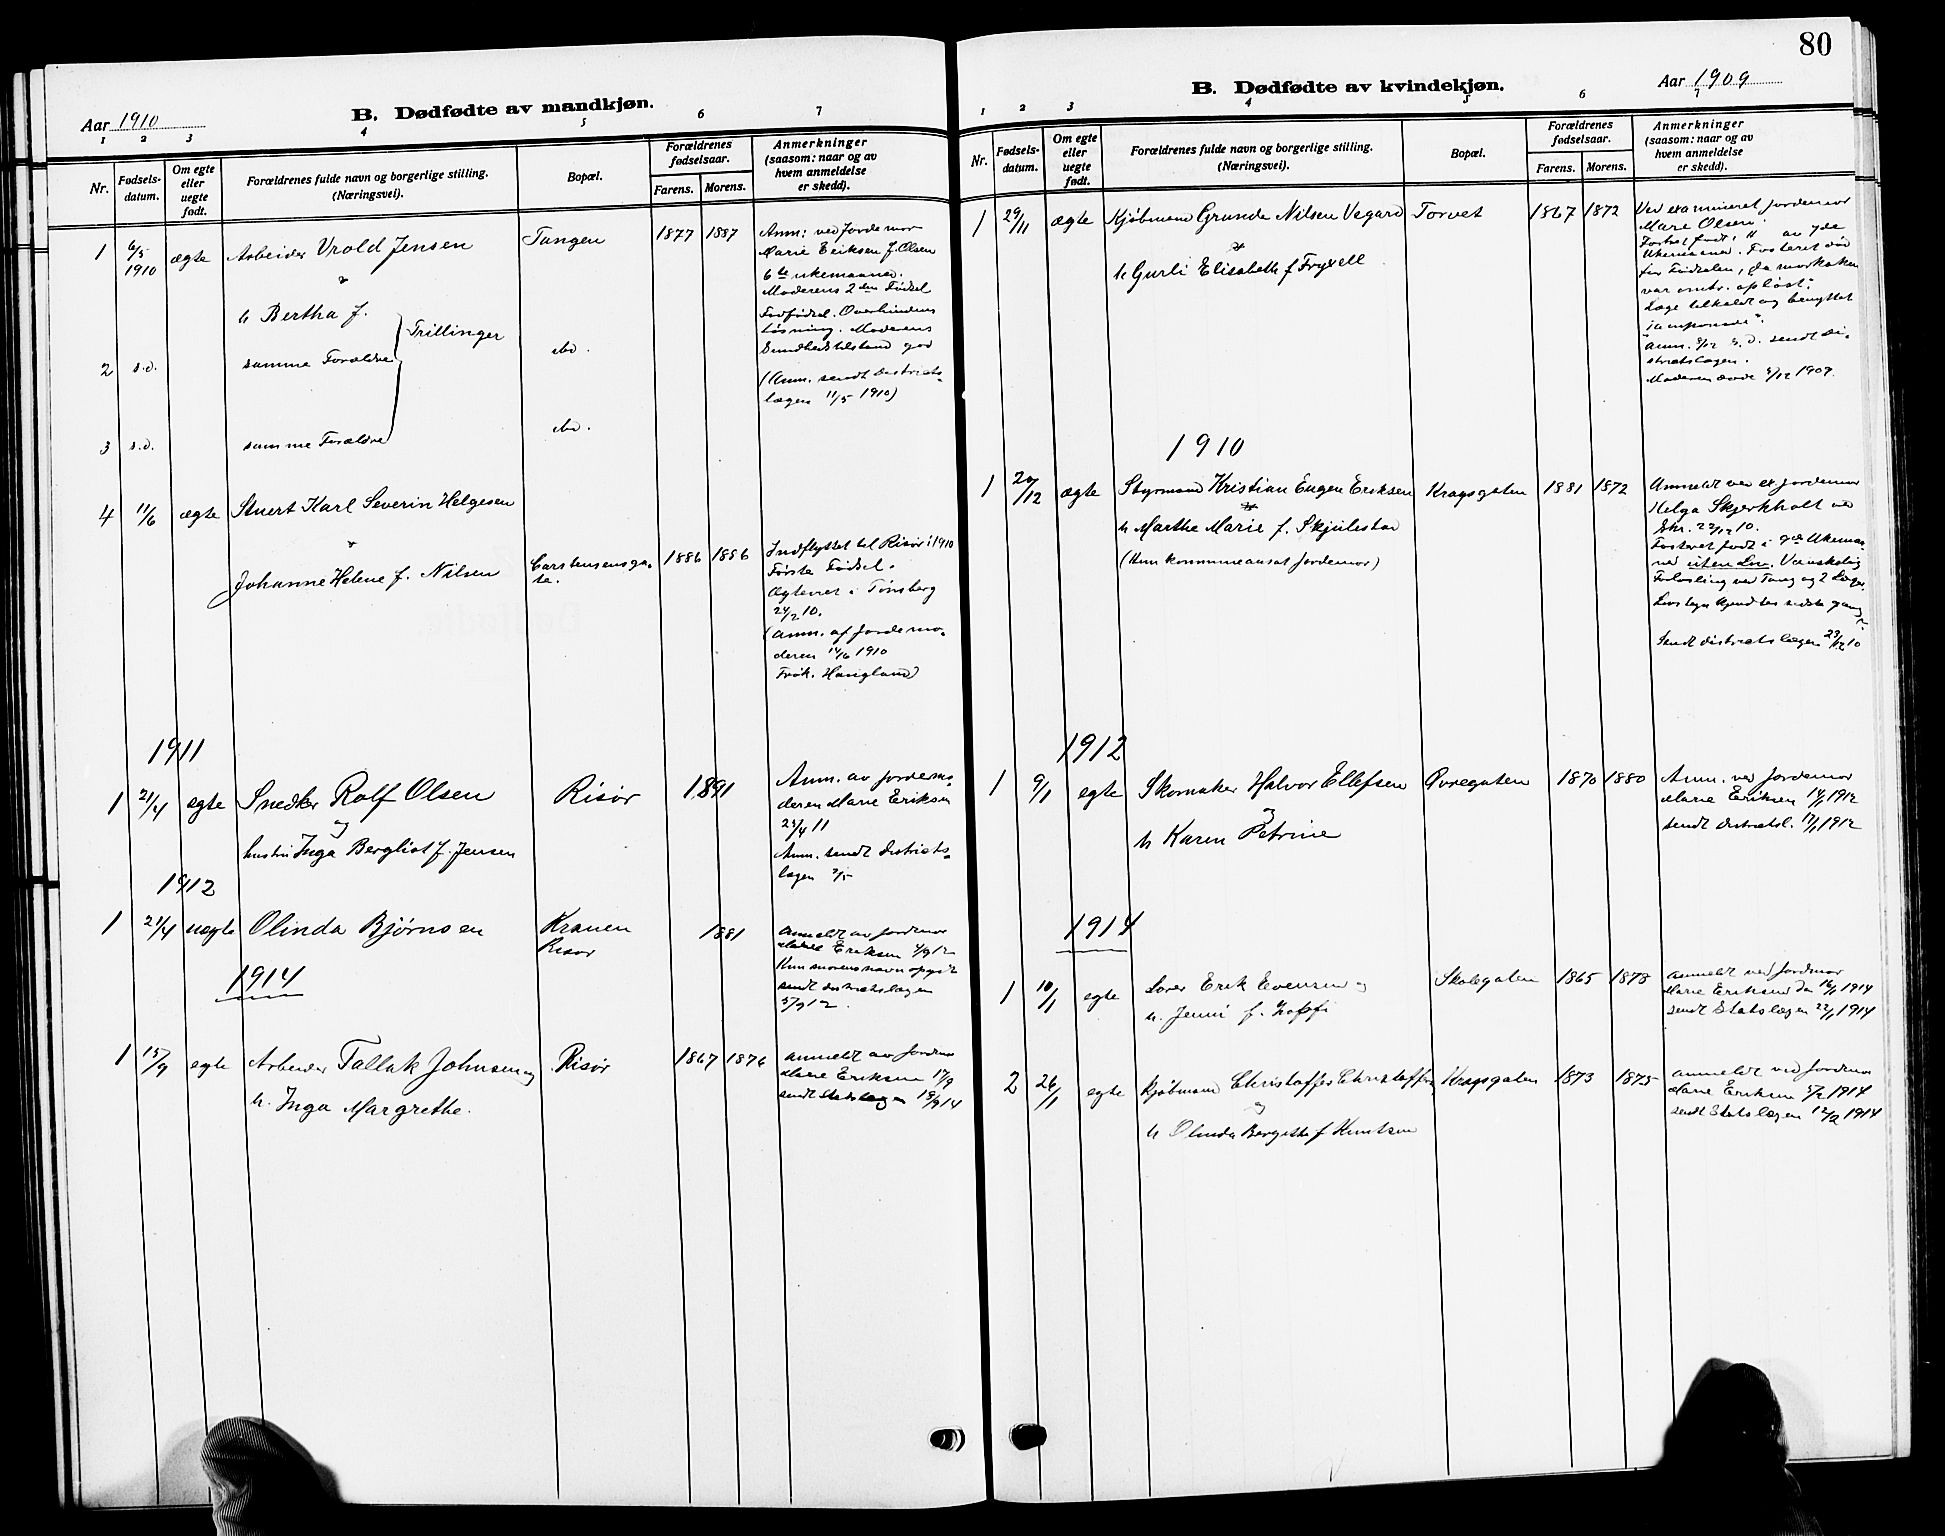 80
B. Dødfødte av mandkjøn.
Aar 1910
1 2 3 4 5 6 7
Nr.
Fødsels-
datum.
Om egte
eller
uegte
født.
Forældrenes fulde navn og borgerlige stilling.
(Næringsvei).
Bopæl.
Forældrenes
fødselsaar.
Farens. Morens.
Anmerkninger
(saasom: naar og av
hvem anmeldelse
er skedd).
1 6/5 1910 ægte Arbeider Vrold Jensen Tangen 1877 1887
h Bertha f.
Trillinger
Anm: ved Jordemor
Marie Eriksen f. Olsen
6te ukemaaned.
Moderens 2den Fødsel
Fodfødsel. Overhindens
Løsning. Moderens
Sundhedstilstand god
(Anm. sendt Distrikts-
lægen 11/5 1910)
2 s.d. samme Forældre do.
3 s.d. samme Forældre do.
4 11/6 ægte Stuert Karl Severin Helgesen
Johanne Helene f. Nilsen Carstensensga-
te. 1886 1886
Indflyttet til Risør i 1910
Første Fødsel.
Ægteviet i Tønsberg
24/2 10.
(Anm. af Jordemo-
deren 14/6 1910
Frøk. Haugland)
1911
1 21/4 egte Snedker Rolf Olsen Risør 1891
og
hustru Inga Bergliot f. Jensen
Anm. av Jordemo-
deren Marie Eriksen
25/4 11
Anm. sendt Distrikts-
lægen 2/5
1912
1 21/4 uegte Olinda Bjørnsen Kranen
Risør 1881
Anmeldt av Jordemor
Marie Eriksen 4/9 12
Kun morens navn opgit
sendt distriktslægen
5/9 12.
1914
1 15/9 egte Arbeider Tallak Johnsen og Risør 1867 1876
h. Inga Margrethe.
Anmeldt av Jordmor
Marie Eriksen 17/9
sendt Statslægen 18/9 14
B. Dødfødte av kvindekjøn.
Aar 1909
1 2 3 4 5 6 7
Nr.
Fødsels-
datum.
Om egte
eller
uegte
født.
Forældrenes fulde navn og borgerlige stilling.
(Næringsvei).
Bopæl.
Forældrenes
fødselsaar.
Farens. Morens.
Anmerkninger
(saasom: naar og av
hvem anmeldelse
er skedd).
1 29/11 ægte Kjøbmand Grunde Nilsen Vegard Torvet 1867 1872
h Gurli Elisabeth f Fryxell
Ved examineret Jordemor
Marie Olsen:
Fostret født i av 7de
Ukemaaned. Fosteret død
før Fødselen, da morkaken
var omtr. opløst.
Læge tilkaldt og benyttet
"tamponade".
Anm. 8/12 s.d. sendt Di-
striktslægen.
Moderen døde 5/12 1909.
1910
1 20/12 ægte Styrmand Kristian Eugen Eriksen Kragsgaten 1881 1872
h Marthe Marie f. Skjulestad
(Kun kommuneansat Jordemor)
Anmeldt ved ex Jordemor
Helga Skjerkholt ved
Skr. 22/12 10.
Fosteret født i 9de Ukemaa-
ned uten Liv. Vanskelig
Forløsning ved Tang og 2 Læger
Livstegn kjendtes sidste gang
Sendt distriktslægen 29/12 10
1912
1 9/1 egte Skomaker Halvor Ellefsen Øvregaten 1870 1880
og
h Karen Petrine
Anm. ved Jordemor
Marie Eriksen 14/1 1912
sendt Distriktsl. 17/1 1912
1914
1 10/1 egte Lods Erik Evensen og Skolegaten 1865 1873
h. Jenni f.
anmeldt ved Jordmor
Marie Eriksen den 16/1 1914
sendt Statslægen 22/1 1914
2 26/1 egte Kjøbmand Christoffer Christoffersen Kragsgaten 1873 1875
og
h Olinda Bergithe f Knutsen
anmeldt ved Jordemor
Marie Eriksen 5/2 1914
sendt Statslægen 12/2 1914